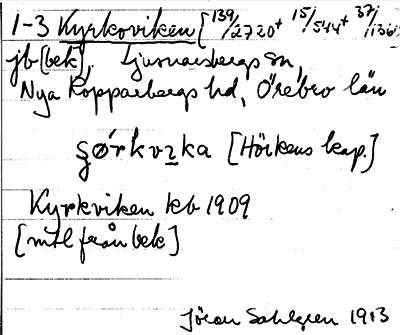 1-3 Kyrkoviken [139/2720+ 15/544+ 37/1136
jb[bek], Ljusnarsbergs sn,
Nya Kopparbergs hd, Örebro län
şørkvıka [Hörkens kap.]
Kyrkviken kb 1909
[mtl från bek]
Jöran Sahlgren 1913